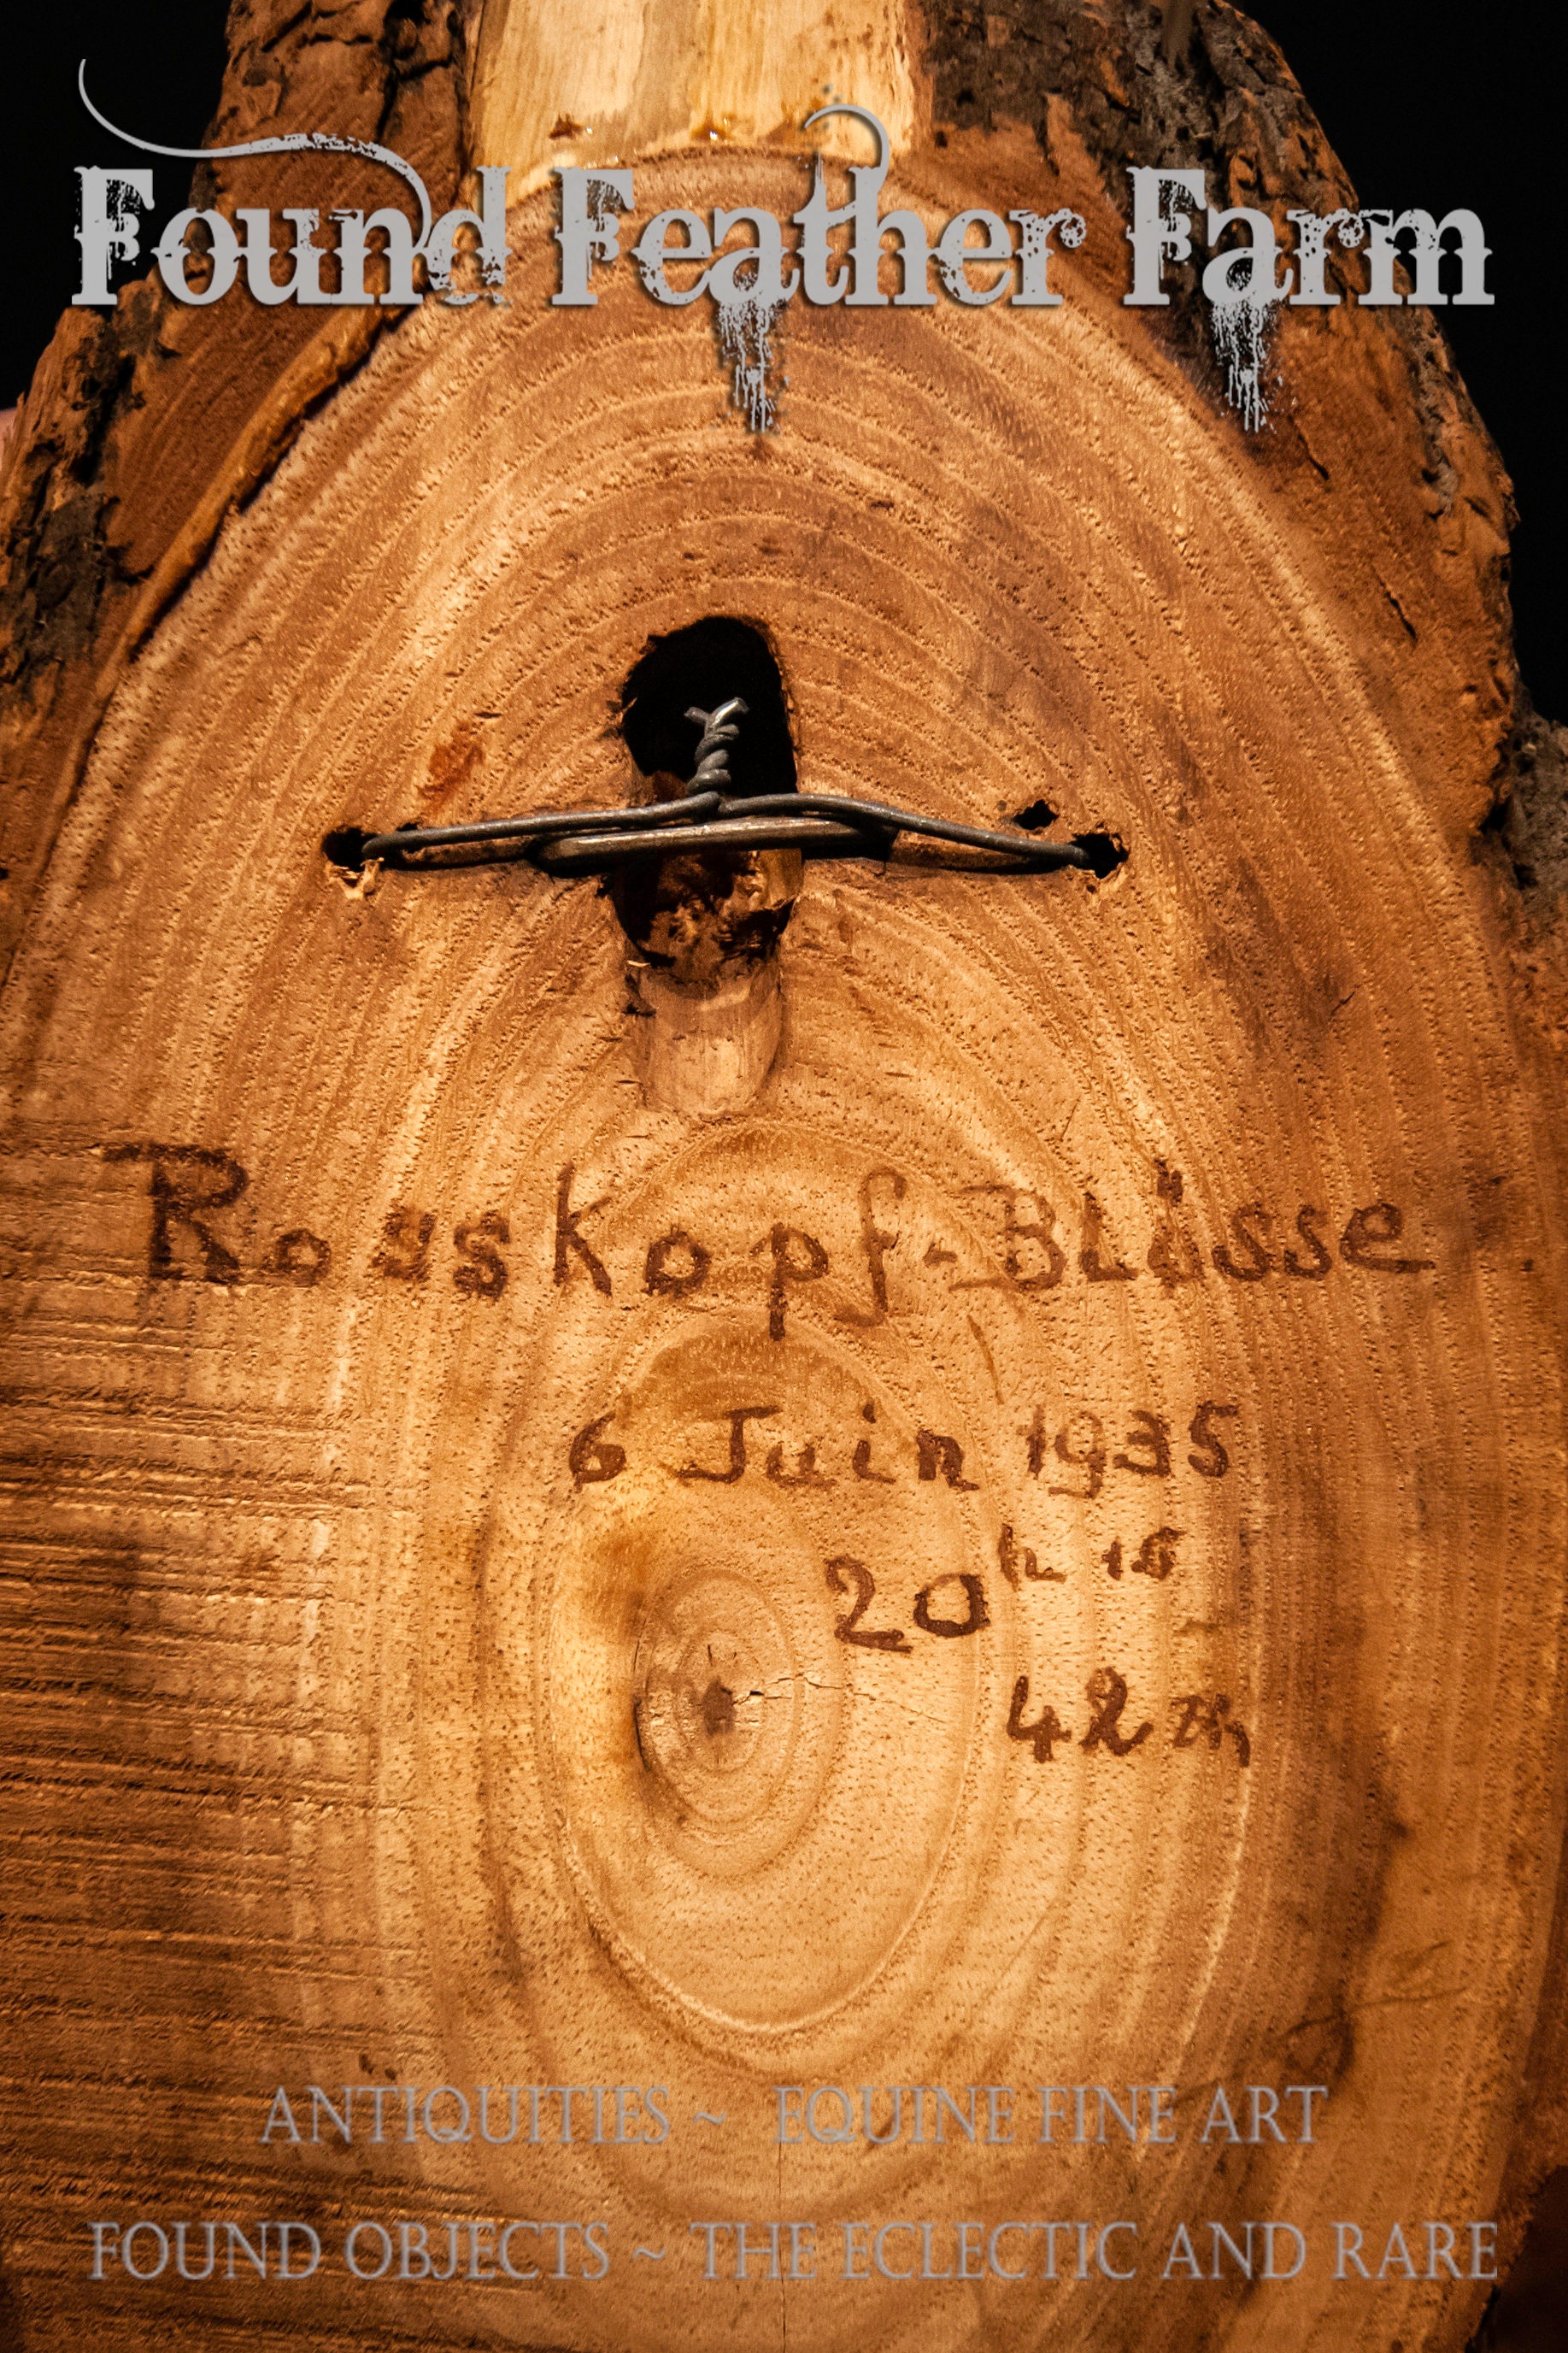 Found Feather Farm
Rosskopf-Blösse
6 Juin 1935
20 h 15
42
ANTIQUITIES ~ EQUINE FINE ART
FOUND OBJECTS ~ THE ECLECTIC AND RARE